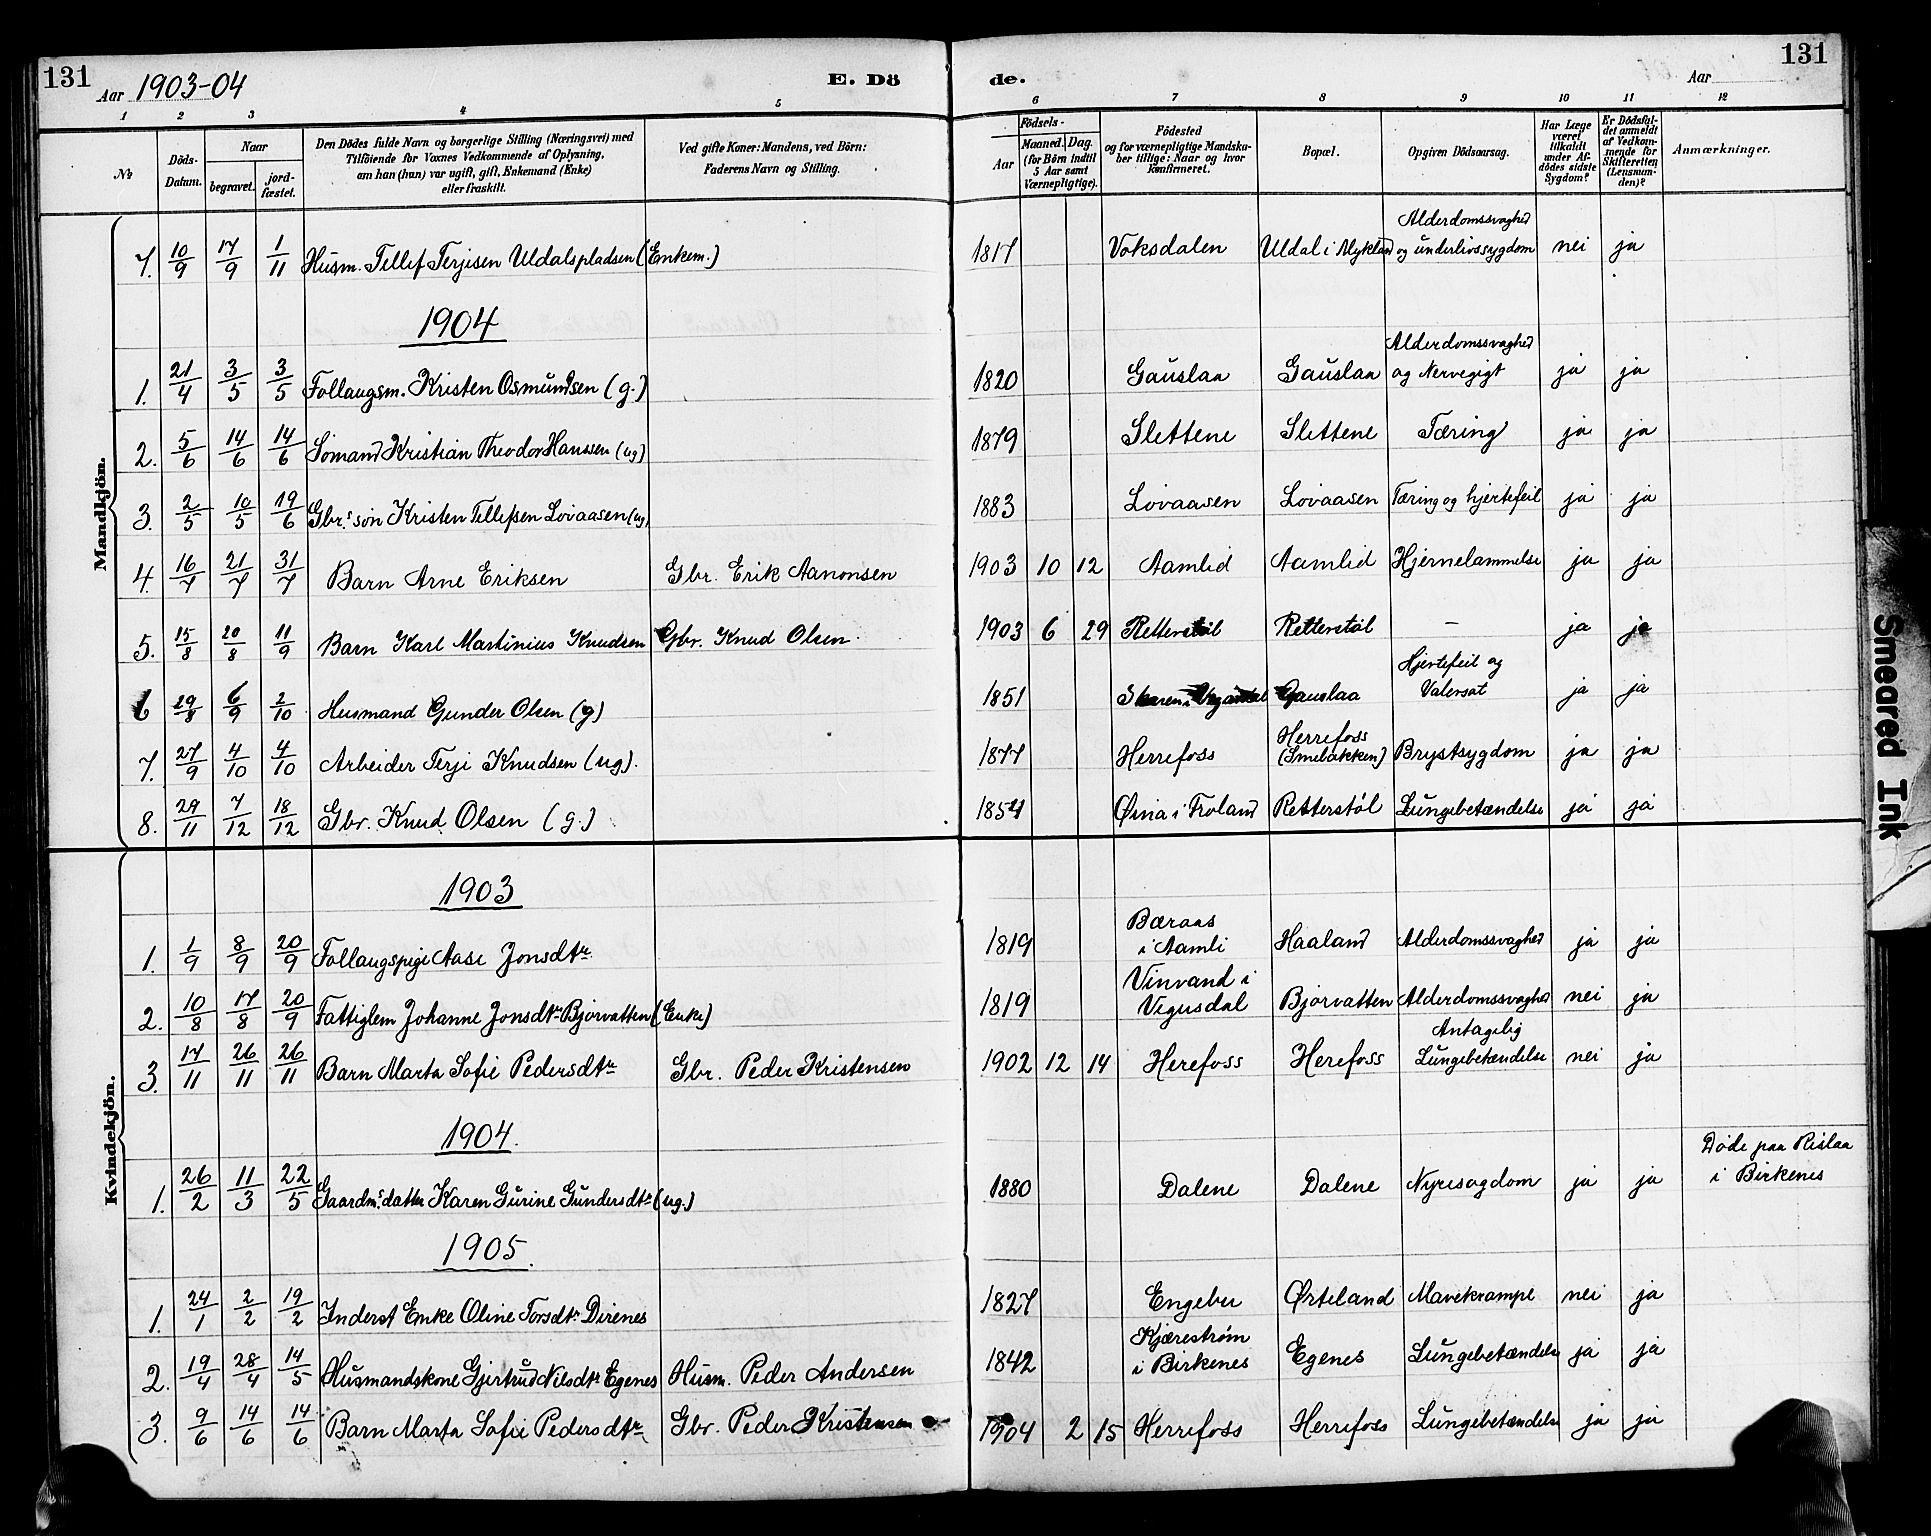 131
Aar 1903-04
E. Dö
de.
Aar
131
1 2 3 4 5 6 7 8 9 10 11 12
No
Döds-Datum.
Naar
begravet.
jord-fæstet.
Den Dödes fulde Navn og borgerlige Stilling (Næringsvei) med
Tilföiende for Voxnes Vedkommende af Oplysning,
om han (hun) var ugift, gift, Enkemand (Enke)
eller fraskilt.
Ved gifte Koner: Mandens, ved Börn:
Faderens Navn og Stilling.
Födsels-
Aar
Maaned. Dag.
(for Börn indtil
5 Aar samt
Værnepligtige).
Födested
og for værnepligtige Mandska-
ber tillige: Naar og hvor
konfirmeret.
Bopæl.
Opgiven Dödsaarsag.
Har Læge
været
tilkaldt
under Af-
dödes sidste
Sygdom?
Er Dödsfal-
det anmeldt
af Vedkom-
mende for
Skifteretten
(Lensman-
den)?
Anmærkninger.
Mandkjön.
7. 10/9 17/9 1/11 Husm. Tellef Terjisen Uldalspladsen (Enkem.) 1817 Voksdalen Uldal i Mykland Alderdomssvaghed og underlivssygdom nei ja
1904
1. 21/4 3/5 3/5 Follaugsm. Kristen Osmundsen (g.) 1820 Gauslaa Gauslaa Alderdomssvaghed og Nervegigt ja ja
2. 5/6 14/6 14/6 Sømand Kristian Theodor Hanssen (ug) 1879 Slettene Slettene Tæring ja ja
3. 2/5 10/5 19/6 Gbr.s søn Kristen Tellefsen Løvaasen (ug) 1883 Løvaasen Løvaasen Tæring og hjertefeil ja ja
4. 16/7 21/7 31/7 Barn Arne Eriksen Gbr. Erik Aanonsen 1903 10 12 Aamlid Aamlid Hjernelammelse ja ja
5. 15/8 20/8 11/9 Barn Karl Martinius Knudsen Gbr. Knud Olsen. 1903 6 29 Retterstøl Retterstøl — ja ja
6 29/8 6/9 2/10 Husmand Gunder Olsen (g) 1851 Gauslaa Hjertefeil og Vatersot ja ja
7. 27/9 4/10 4/10 Arbeider Terje Knudsen (ug). 1877 Herrefoss Herrefoss (Smebakken) Brystsygdom ja ja
8. 29/11 7/12 18/12 Gbr. Knud Olsen (g.) 1854 Øina i Froland Retterstøl Lungebetændelse ja ja
Kvindekjön.
1903
1. 1/9 8/9 20/9 Follaugspige Aase Jonsdtr 1819 Bæraas i Aamli Haaland Alderdomssvaghed ja ja
2. 10/8 17/8 20/9 Fattiglem Johanne Jonsdtr Bjorvatten (Enke) 1819 Vinvand i Vegusdal Bjorvatten Alderdomssvaghed nei ja
3. 17/11 26/11 26/11 Barn Marta Sofie Pedersdtr Gbr. Peder Kristensen 1902 12 14 Herefoss Herefoss Antagelig Lungebetændelse nei ja
1904.
1. 26/2 11/3 22/5 Gaardm.s datter Karen Gurine Gundersdtr (ug.) 1880 Dalene Dalene Nyresygdom ja ja Døde paa Rislaa i Birkenes
1905.
1. 24/1 2/2 19/2 Inderst Enke Oline Torsdtr Direnes 1827 Engebu Ørteland Mavekrampe nei ja
2. 19/4 28/4 14/5 Husmandskone Gjertrud Nilsdtr Egenes Husm. Peder Andersen 1842 Kjærestrøm i Birkenes Egenes Lungebetændelse ja ja
3. 9/6 14/6 14/6 Barn Marta Sofie Pedersdtr Gbr. Peder Kristensen 1904 2 15 Herrefoss Herrefoss Lungebetændelse ja ja
Smeared Ink